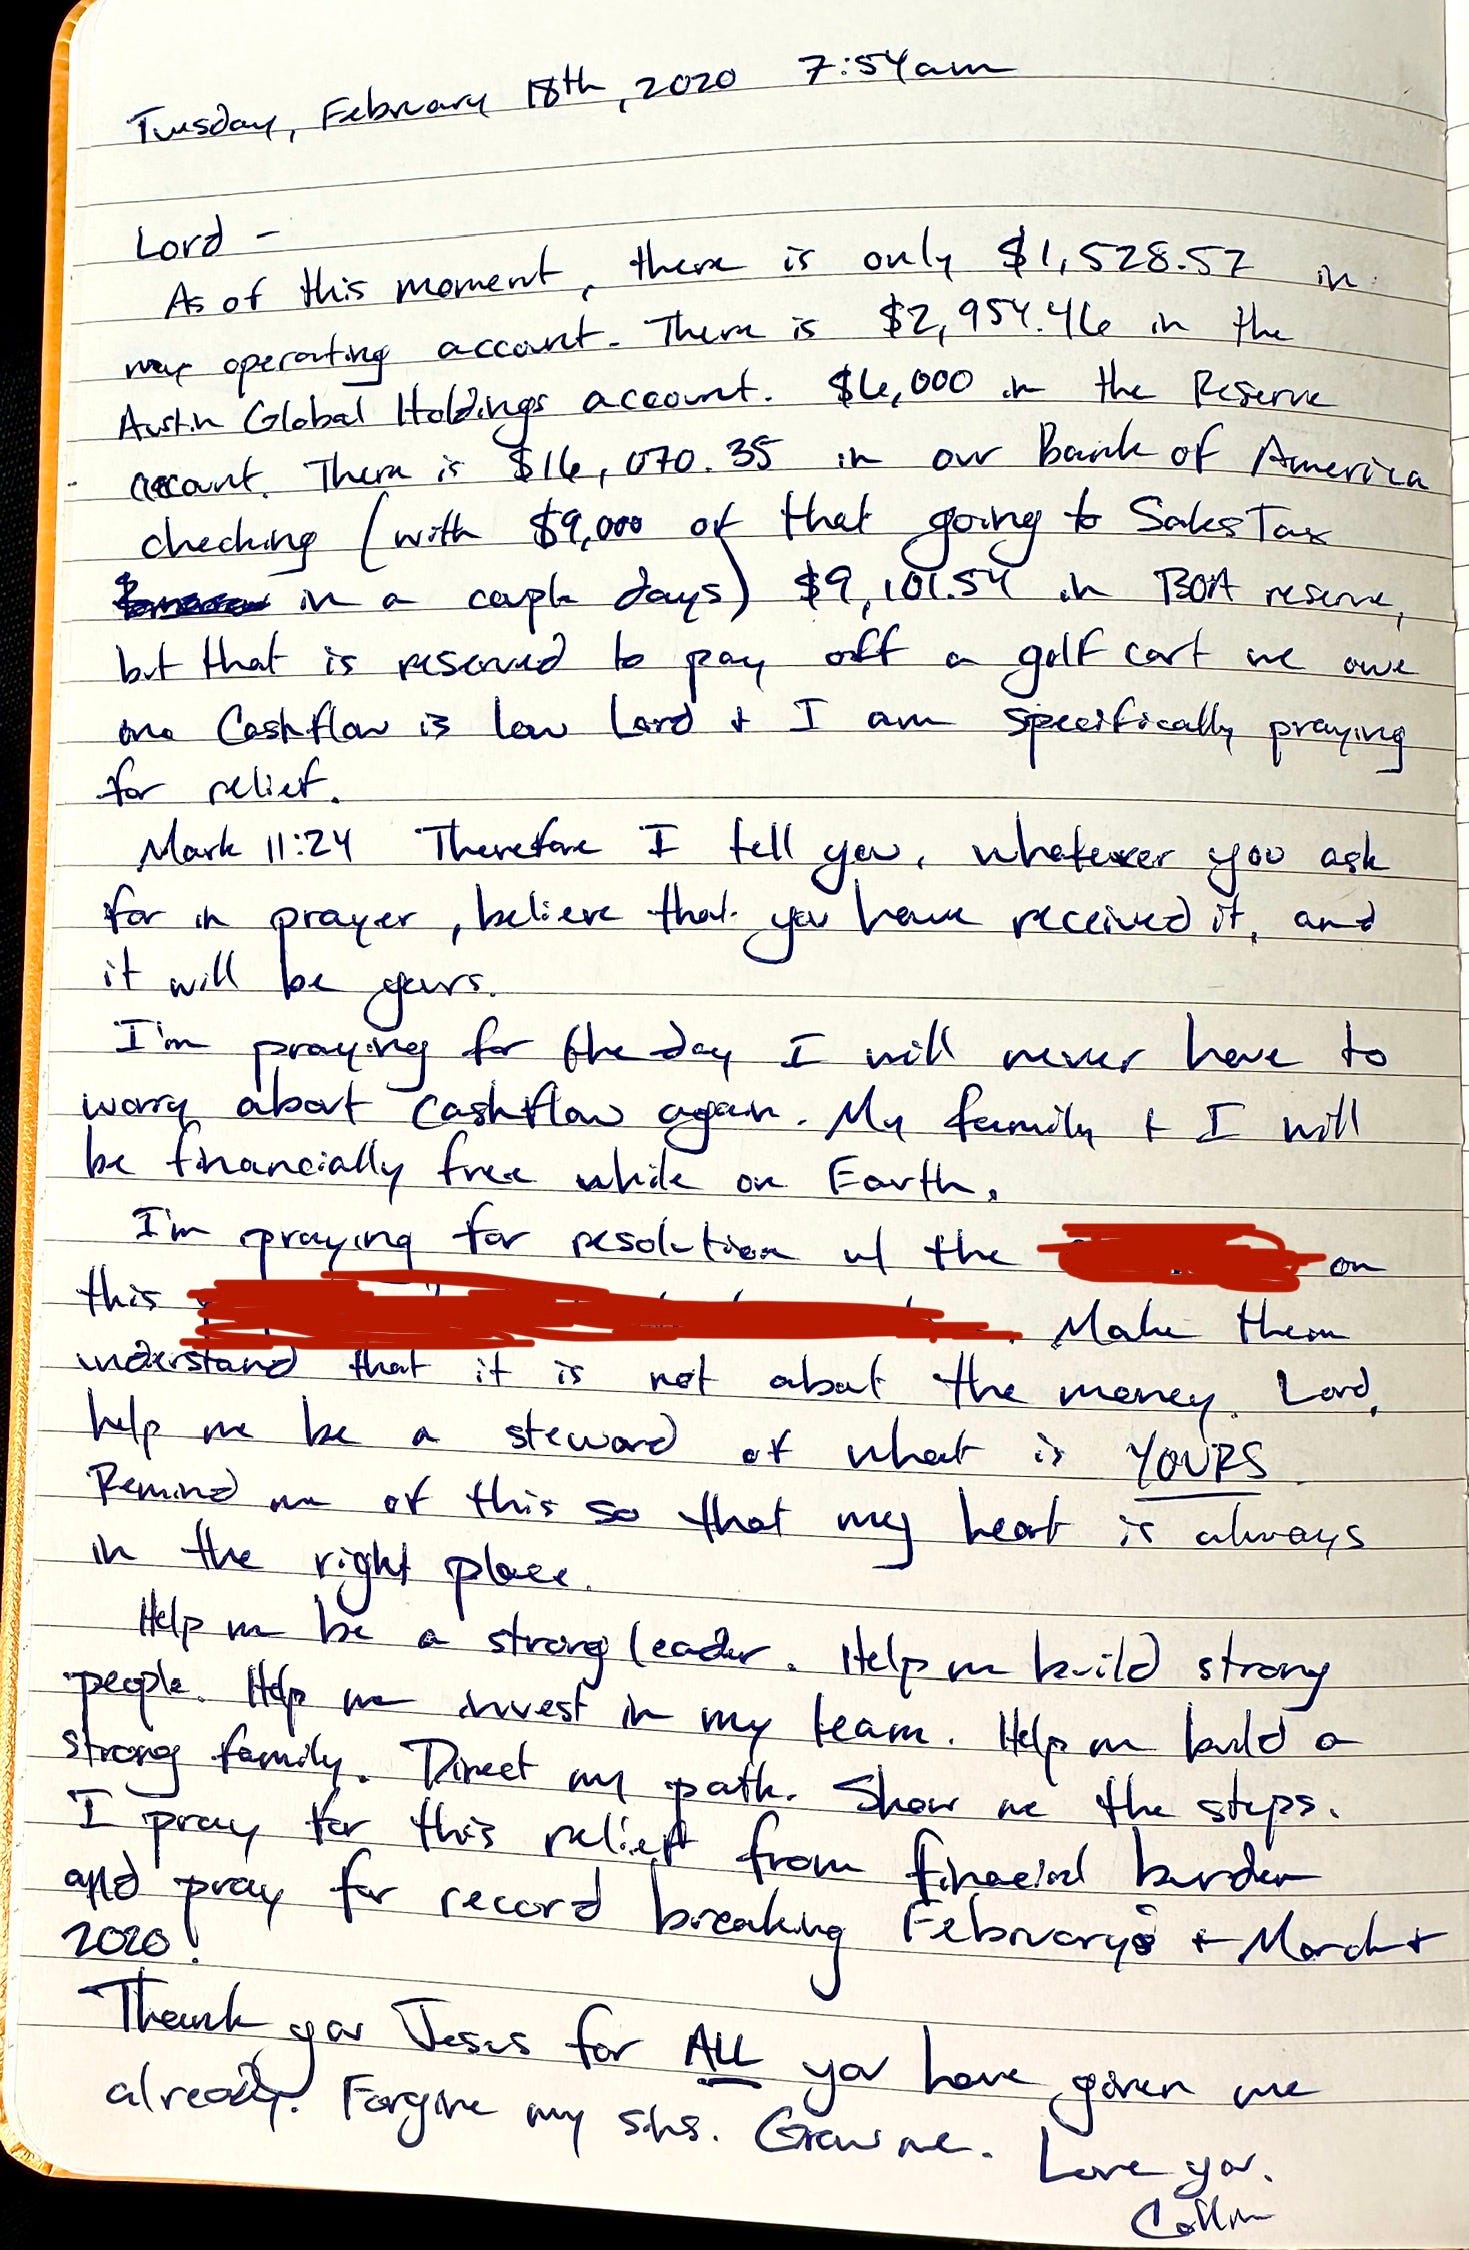 Tuesday, February 18th, 2020 7:54am
Lord -
As of this moment, there is only $1,528.57 in
my operating account. There is $2,954.46 in the
Austin Global Holdings account. $6,000 in the Reserve
account. There is $16,070.35 in our Bank of America
checking (with $9,000 of that going to Sales Tax
in a couple days) $9,101.54 in BOA reserve,
but that is reserved to pay off a golf cart we owe
on. Cashflow is low Lord + I am specifically praying
for relief.
Mark 11:24 Therefore I tell you, whatever you ask
for in prayer, believe that you have received it, and
it will be yours.
I'm praying for the day I will never have to
worry about cashflow again. My family + I will
be financially free while on Earth.
I'm praying for resolution w/ the on
this . Make them
understand that it is not about the money. Lord,
help me be a steward of what is YOURS.
Remind me of this so that my heart is always
in the right place.
Help me be a strong leader. Help me build strong
people. Help me invest in my team. Help me build a
strong family. Direct my path. Show me the steps.
I pray for this relief from financial burden
and pray for record breaking February + March
2020!
Thank you Jesus for ALL you have given me
already. Forgive my sins. Grow me. Love you.